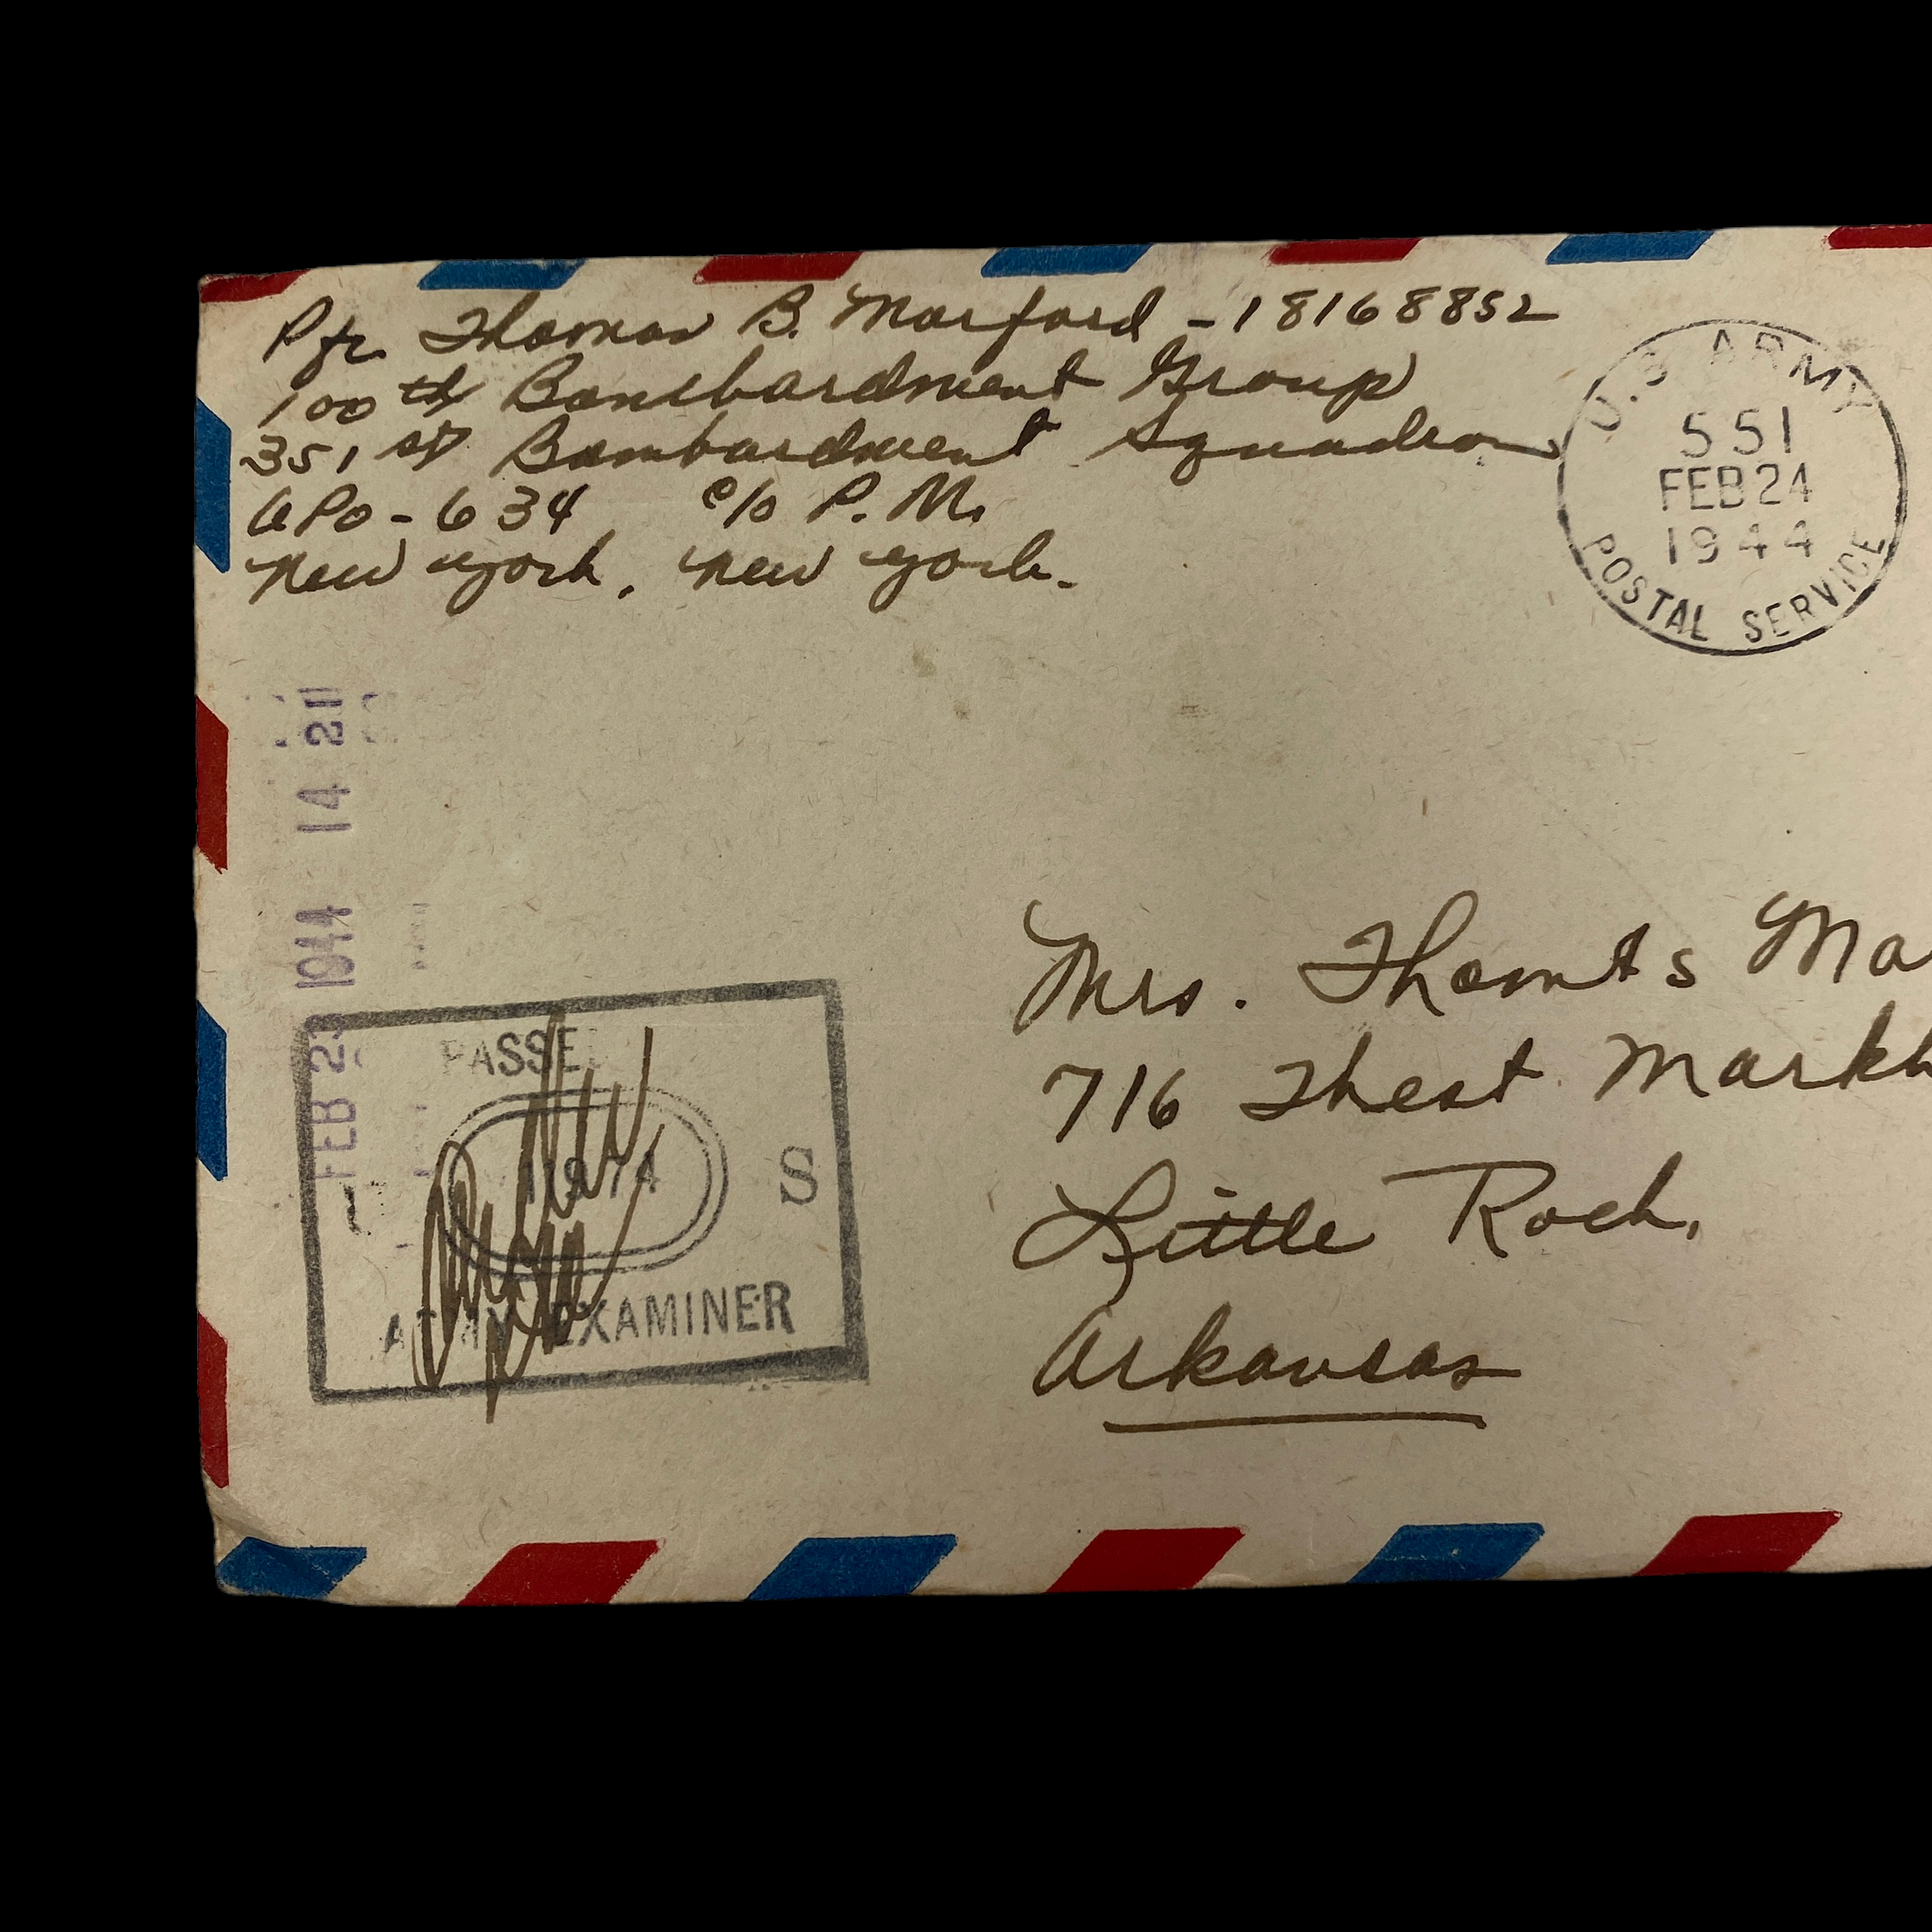 Pfc Thomas B. Morford - 18168852
100th Bombardment Group
351st Bombardment Squadron
APO - 634 c/o P. M.
New York, New York.
U.S. ARMY
551
FEB 24
1944
POSTAL SERVICE
FEB 23 1944 14 21
PASSE
S
ARMY EXAMINER
Mrs. Thomas Mo
716 West Markh
Little Rock,
Arkansas